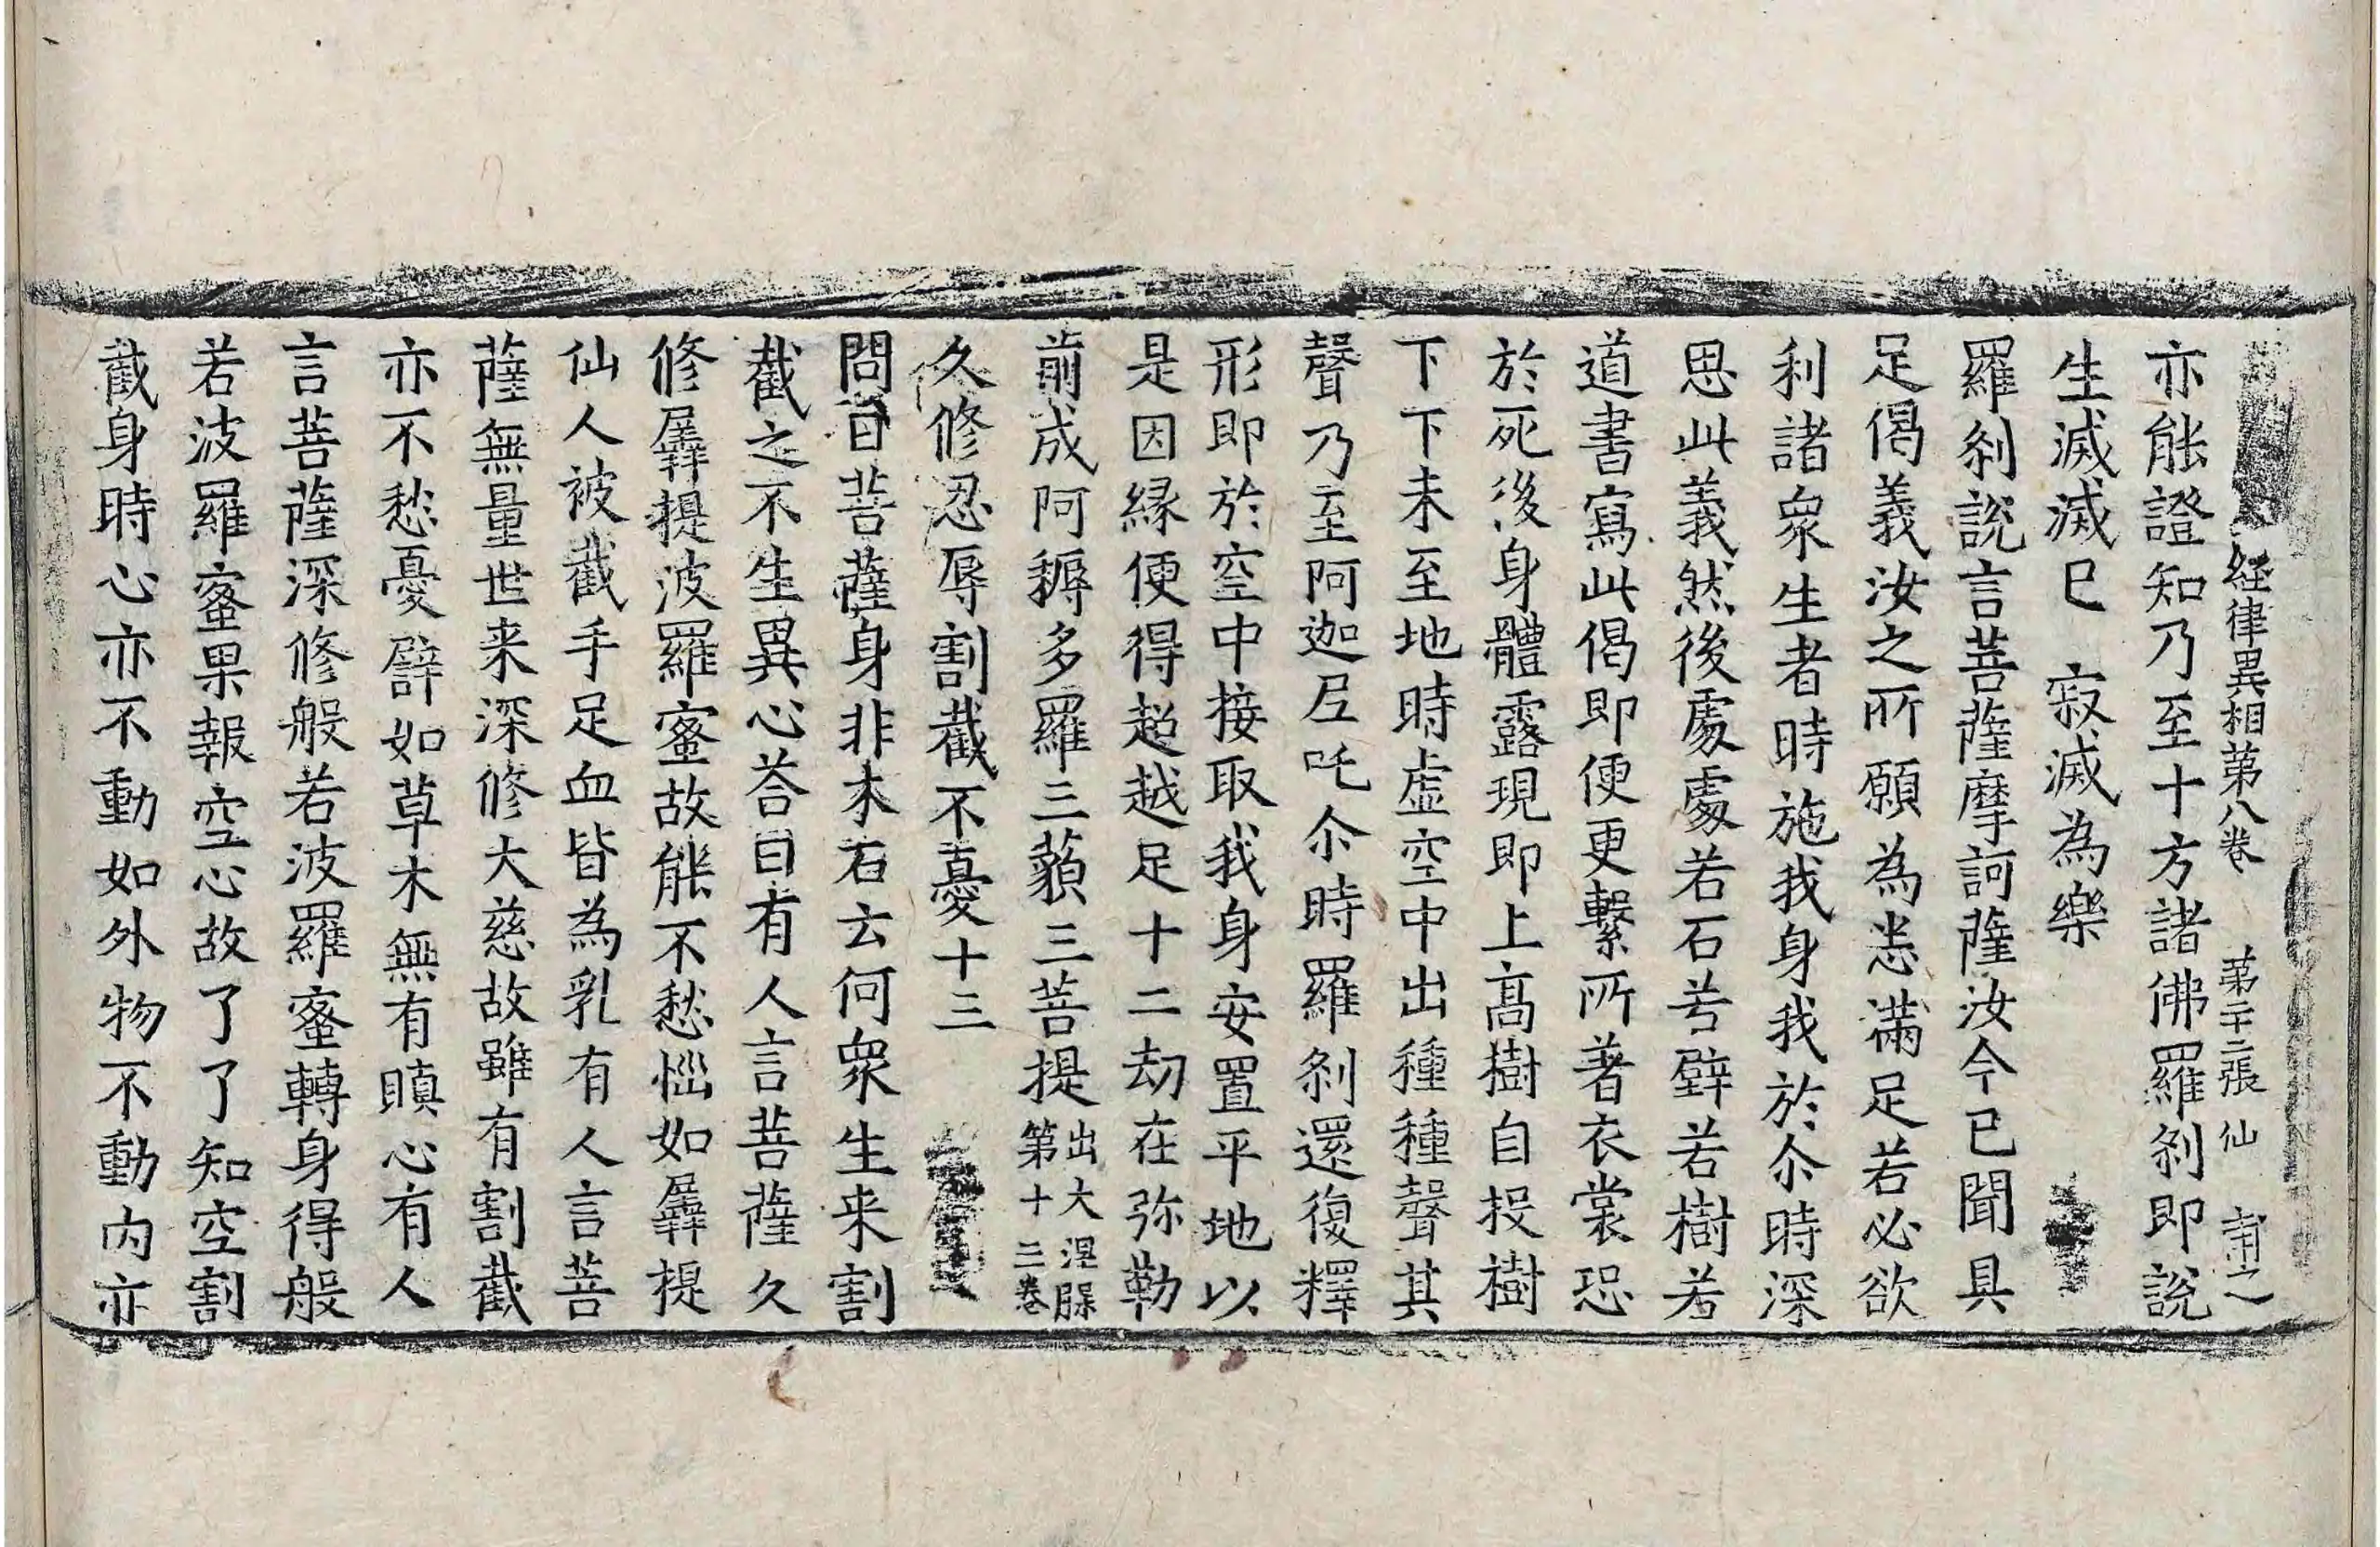 経律異相苐八卷 苐二十二張 仙 甫之
亦能證知乃至十方諸佛羅刹即說
生滅滅已 寂滅為樂
羅刹說言菩薩摩訶薩汝今已聞具
足偈義汝之所願為悉滿足若必欲
利諸衆生者時施我身我於尒時深
思此義然後處處若石若壁若樹若
道書寫此偈即便更繫所著衣裳恐
於死後身體露現即上髙樹自投樹
下下未至地時虛空中出種種聲其
聲乃至阿迦尼吒尒時羅刹還復釋
形即於空中接取我身安置平地以
是因緣便得超越足十二劫在弥勒
前成阿耨多羅三藐三菩提出大涅槃第十三卷
久修忍辱割截不憂十三
問曰菩薩身非木石云何衆生来割
截之不生異心荅曰有人言菩薩久
修羼提波羅蜜故能不愁惱如羼提
仙人被截手足血皆為乳有人言菩
薩無量世来深修大慈故雖有割截
亦不愁憂辟如草木無有瞋心有人
言菩薩深修般若波羅蜜轉身得般
若波羅蜜果報空心故了了知空割
截身時心亦不動如外物不動内亦